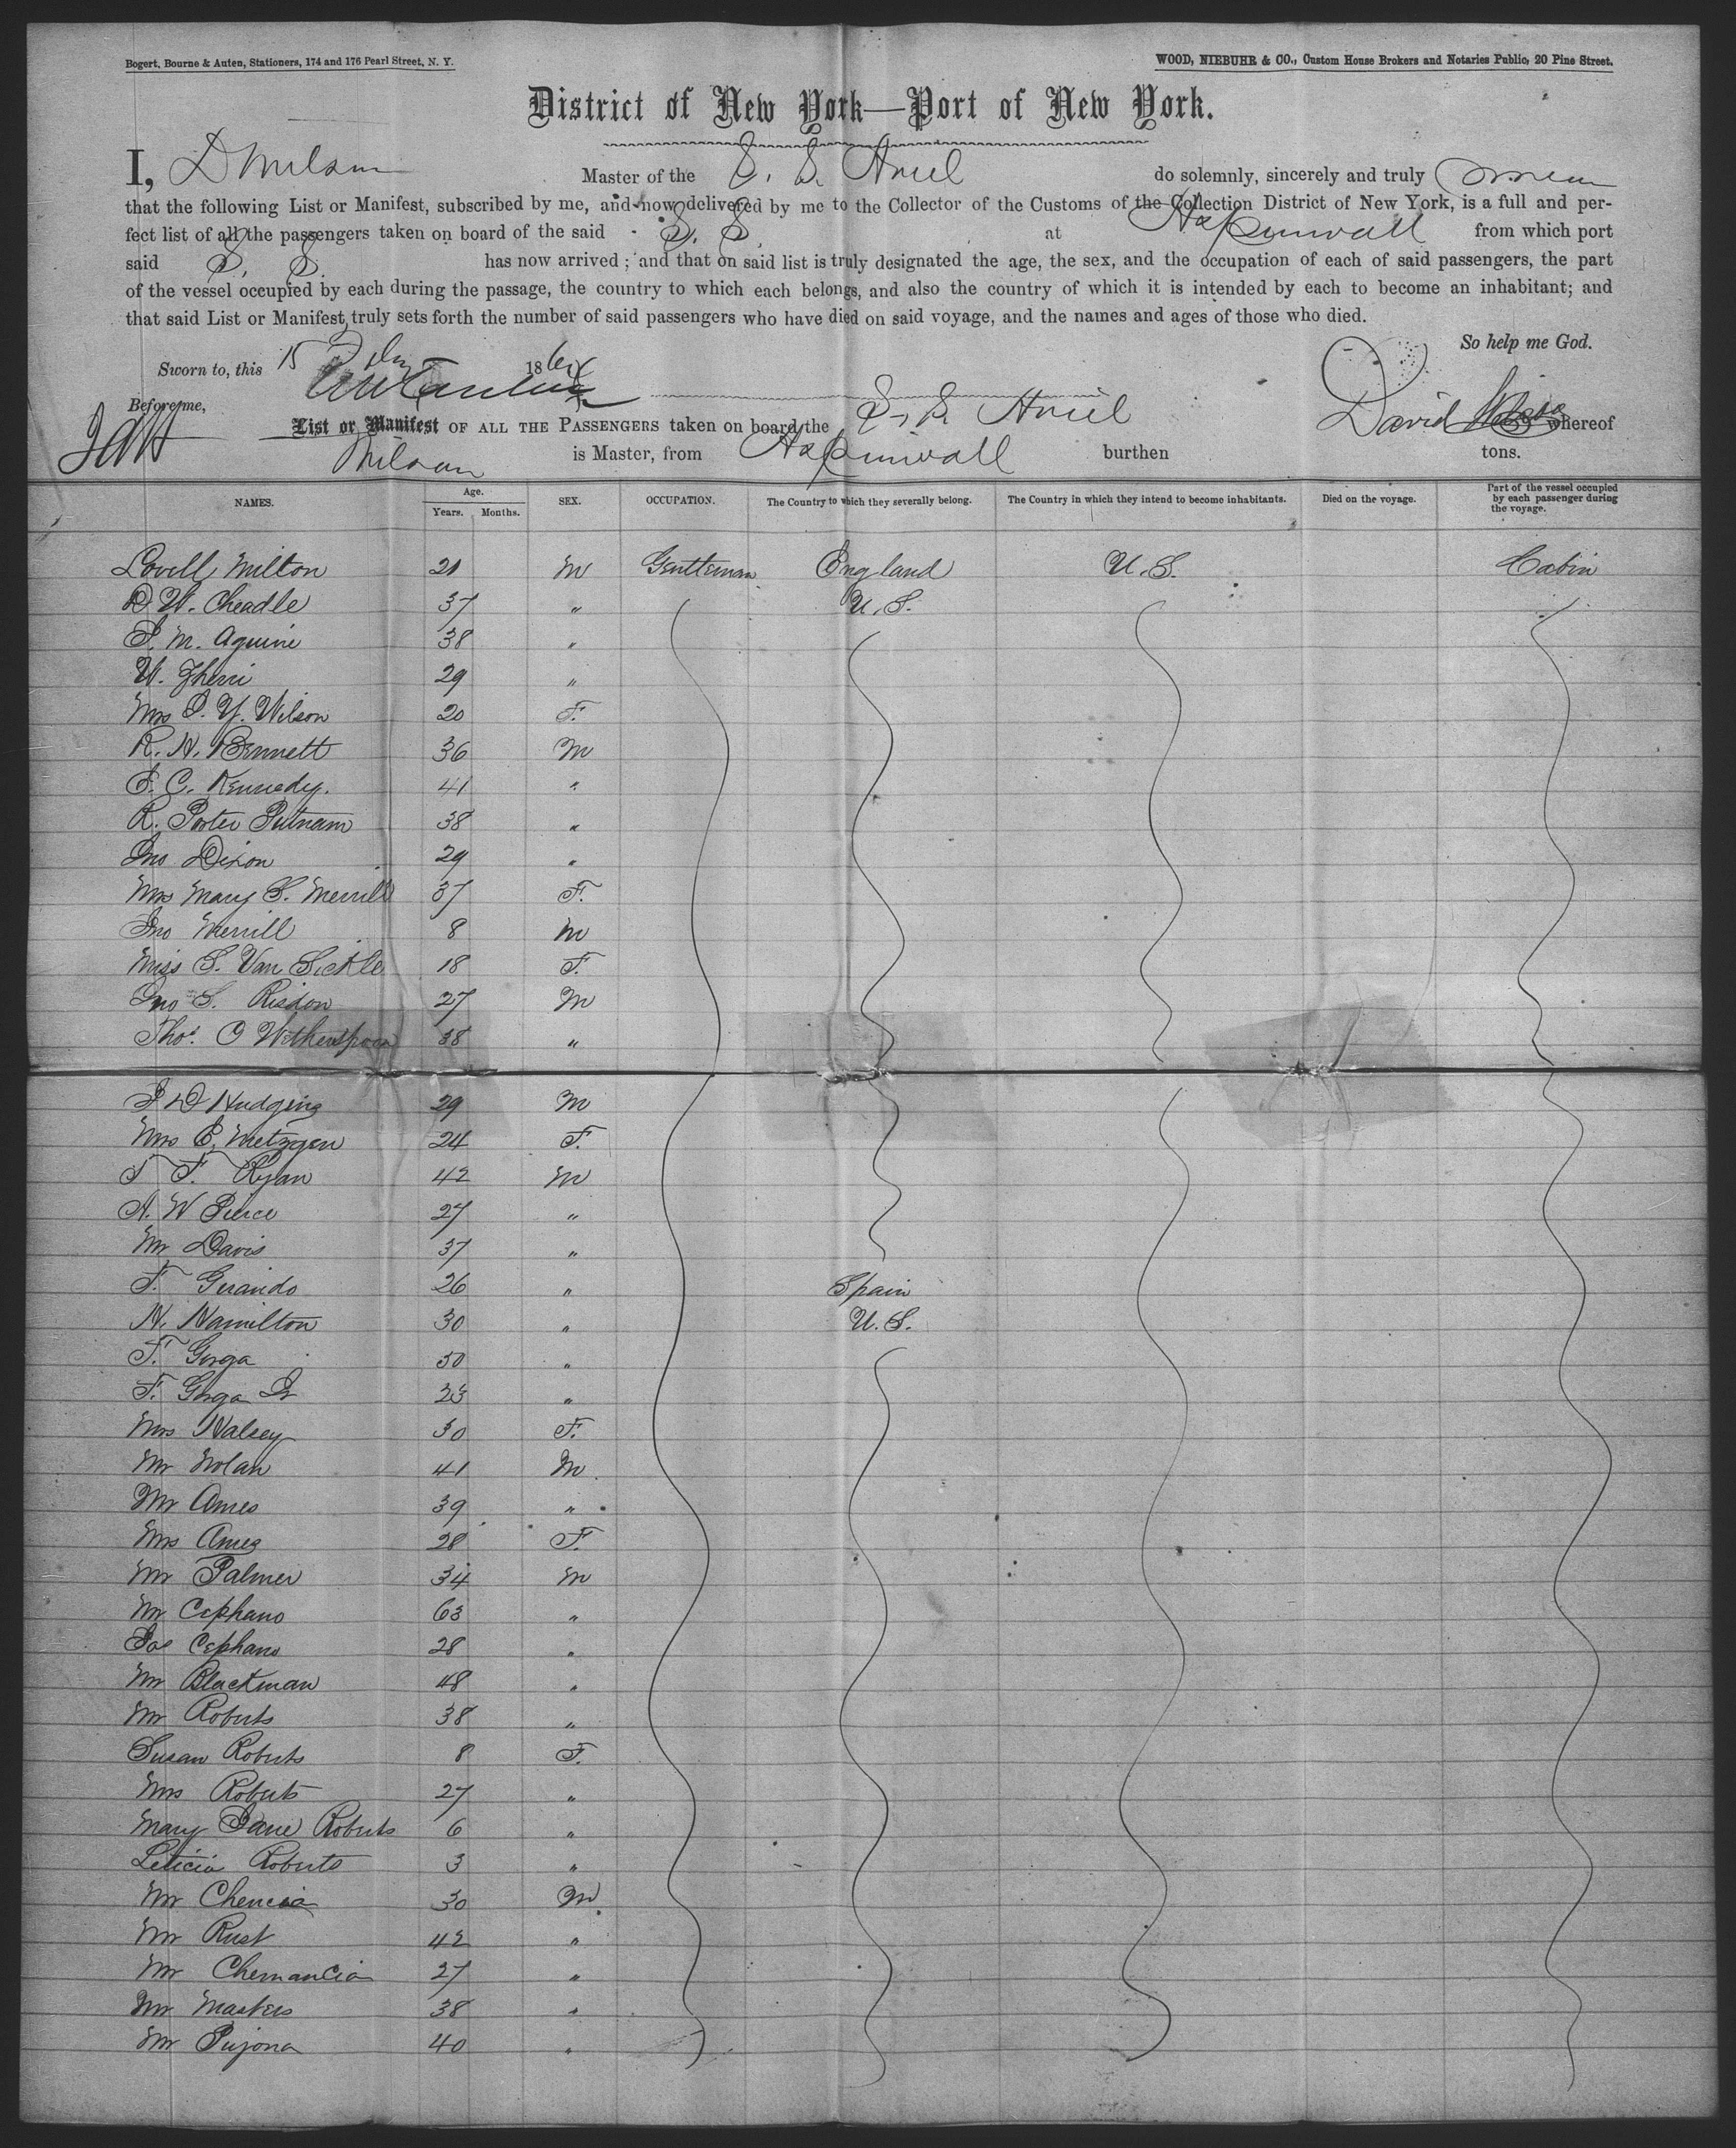 Bogert, Bourne & Auten, Stationers, 174 and 176 Pearl Street, N. Y.
WOOD, NIEBUHR & CO., Custom House Brokers and Notaries Public, 20 Pine Street.
District of New York—Port of New York.
I, D Wilson Master of the S. S. Ariel do solemnly, sincerely and truly swear
that the following List or Manifest, subscribed by me, and now delivered by me to the Collector of the Customs of the Collection District of New York, is a full and per-
fect list of all the passengers taken on board of the said S. S. at Aspinwall from which port
said S. S. has now arrived; and that on said list is truly designated the age, the sex, and the occupation of each of said passengers, the part
of the vessel occupied by each during the passage, the country to which each belongs, and also the country of which it is intended by each to become an inhabitant; and
that said List or Manifest truly sets forth the number of said passengers who have died on said voyage, and the names and ages of those who died.
So help me God.
Sworn to, this 15 186
Before me,
List or Manifest OF ALL THE PASSENGERS taken on board the S. S. Ariel David whereof
Wilson is Master, from Aspinwall burthen tons.
NAMES. Age. Years. Months. SEX. OCCUPATION. The Country to which they severally belong. The Country in which they intend to become inhabitants. Died on the voyage. Part of the vessel occupied by each passenger during the voyage.
Lovell Milton 21 M Gentleman England U.S. Cabin
D. W. Cheadle 37 " U.S.
J. M. Aguirie 38 "
W. 29 "
Mrs J. Y. Wilson 20 F.
R. H. Bennett 36 M
E. C. Kennedy. 41 "
R. Porter Putnam 38 "
Jno Dixon 29 "
Mrs Mary S. Merrill 37 F.
Jno Merrill 8 M
Miss S. Van Sickle 18 F.
Jno S. Risdon 27 M
Thos. O Witherspoon 38 "
J D Hudgins 29 M
Mrs E. Metzgen 24 F.
T F. Ryan 42 M
A. W Pierce 27 "
Mr Davis 37 "
F. Girando 26 " Spain
H. Hamilton 30 " U.S.
F. Gorga 50 "
F. Gorga Jr 23 "
Mrs Halsey 30 F.
Mr Nolan 41 M
Mr Ames 39 "
Mrs Ames 28 F.
Mr Palmer 34 M
Mr Cephano 63 "
Jos Cephano 28 "
Mr Blackman 48 "
Mr Roberts 38 "
Susan Roberts 8 F.
Mrs Roberts 27 "
Mary Jane Roberts 6 "
Leticia Roberts 3 "
Mr 30 M
Mr Rust 42 "
Mr Chemancia 27 "
Mr Masters 38 "
Mr Pujona 40 "